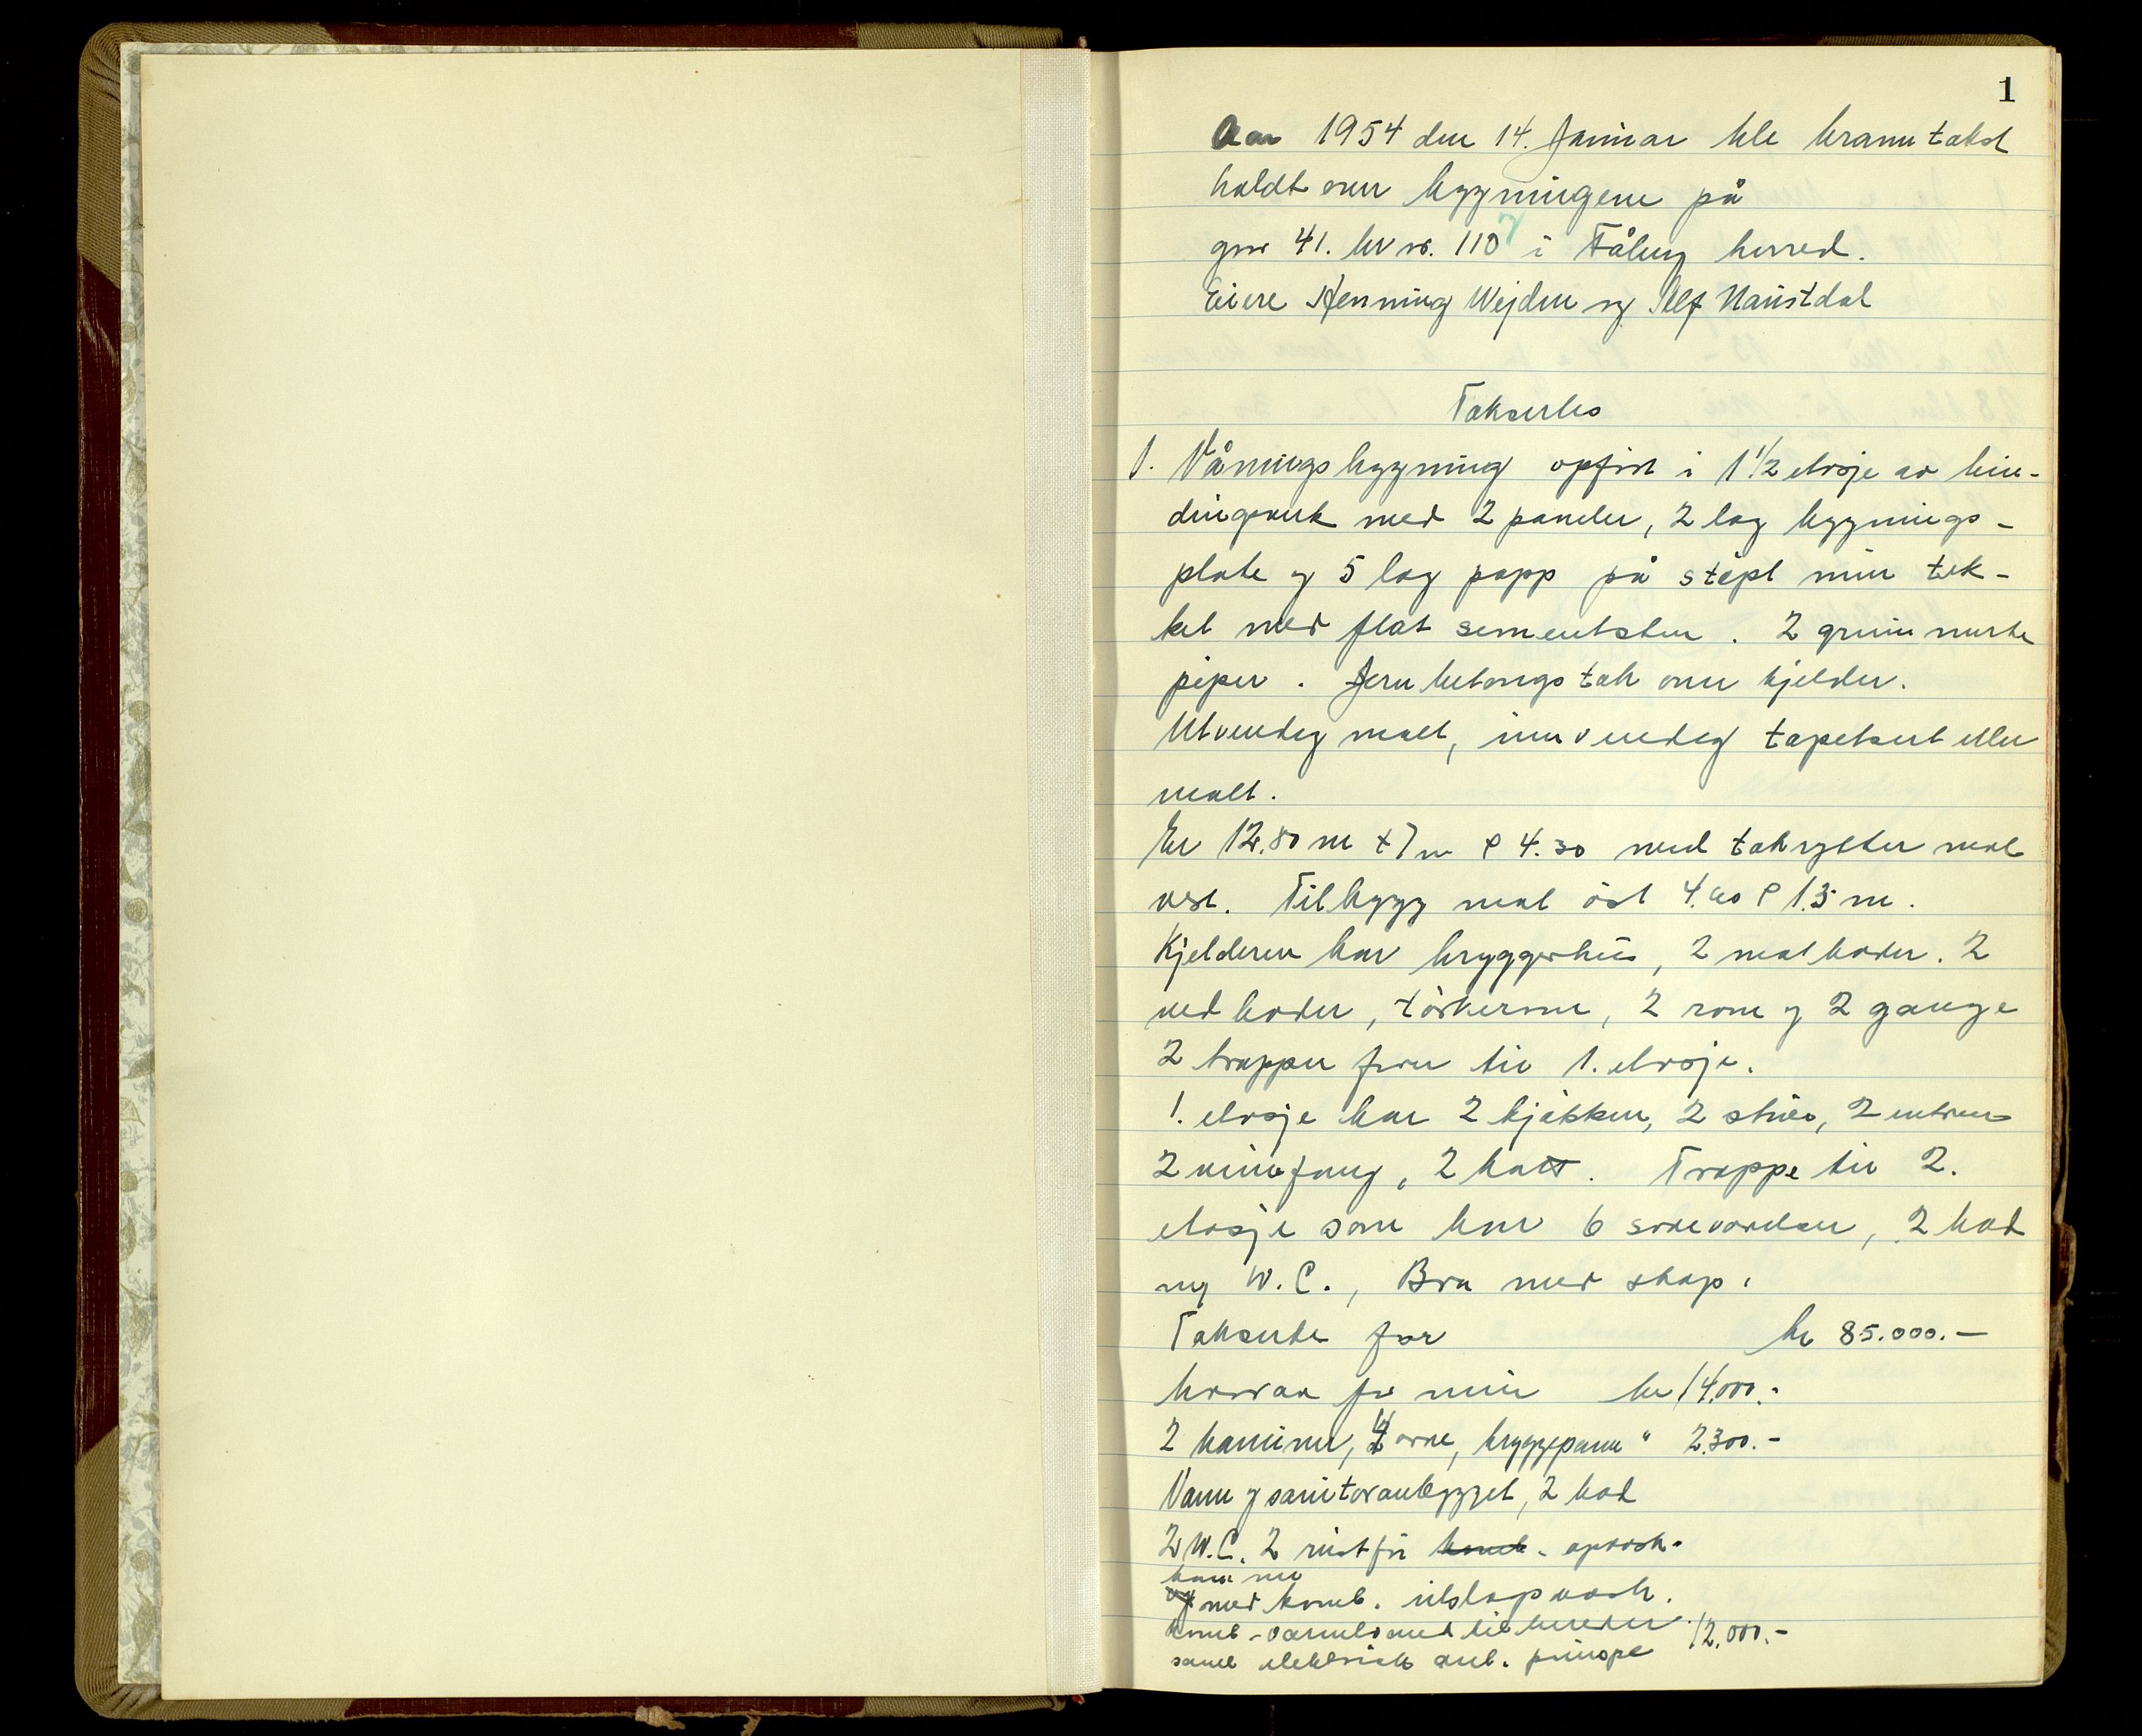 1
Aar 1954 den 14. Januar ble branntakst
holdt over bygningene på
gnr 41. brnr. 110 7 i Fåberg herred.
Eiere Henning Wejden og Alf Naustdal
Taksertes
1. Våningsbygning opført i 1 1/2 etasje av bin-
dingsverk med 2 paneler, 2 lag bygnings-
plate og 5 lag papp på støpt mur tek-
ket med flat sementsten. 2 grunnmurte
piper. Jernbetongstak over kjelder.
Utvendig malt, innvendig tapetsert eller
malt.
Er 12.80 m x 7 m 4.30 med takrytter mot
vest. Tilbygg mot øst 4.60 1.5 m.
Kjelderen har bryggerhus, 2 matboder. 2
vedboder, tørkerom, 2 rom og 2 gange
2 trapper fører til 1. etasje.
1. etasje har 2 kjøkken, 2 stuer, 2 entreer
2 vindfang, 2 Trappe til 2.
etasje som har 6 soveværelser, 2 bad
og W.C., Bra med skap.
Takserte for kr 85.000.-
hvorav for mur kr 14.000.-
2 kaminer, 4 ovne, bryggepanne " 2.300.-
Vann og sanitæranlegget, 2 bad
2 W.C. 2 rustfri komb. opvask-
kummer
og med komb. utslagsvask.
komb. varmtvand tilbereder 12.000.-
samt elektrisk anl. pumpe